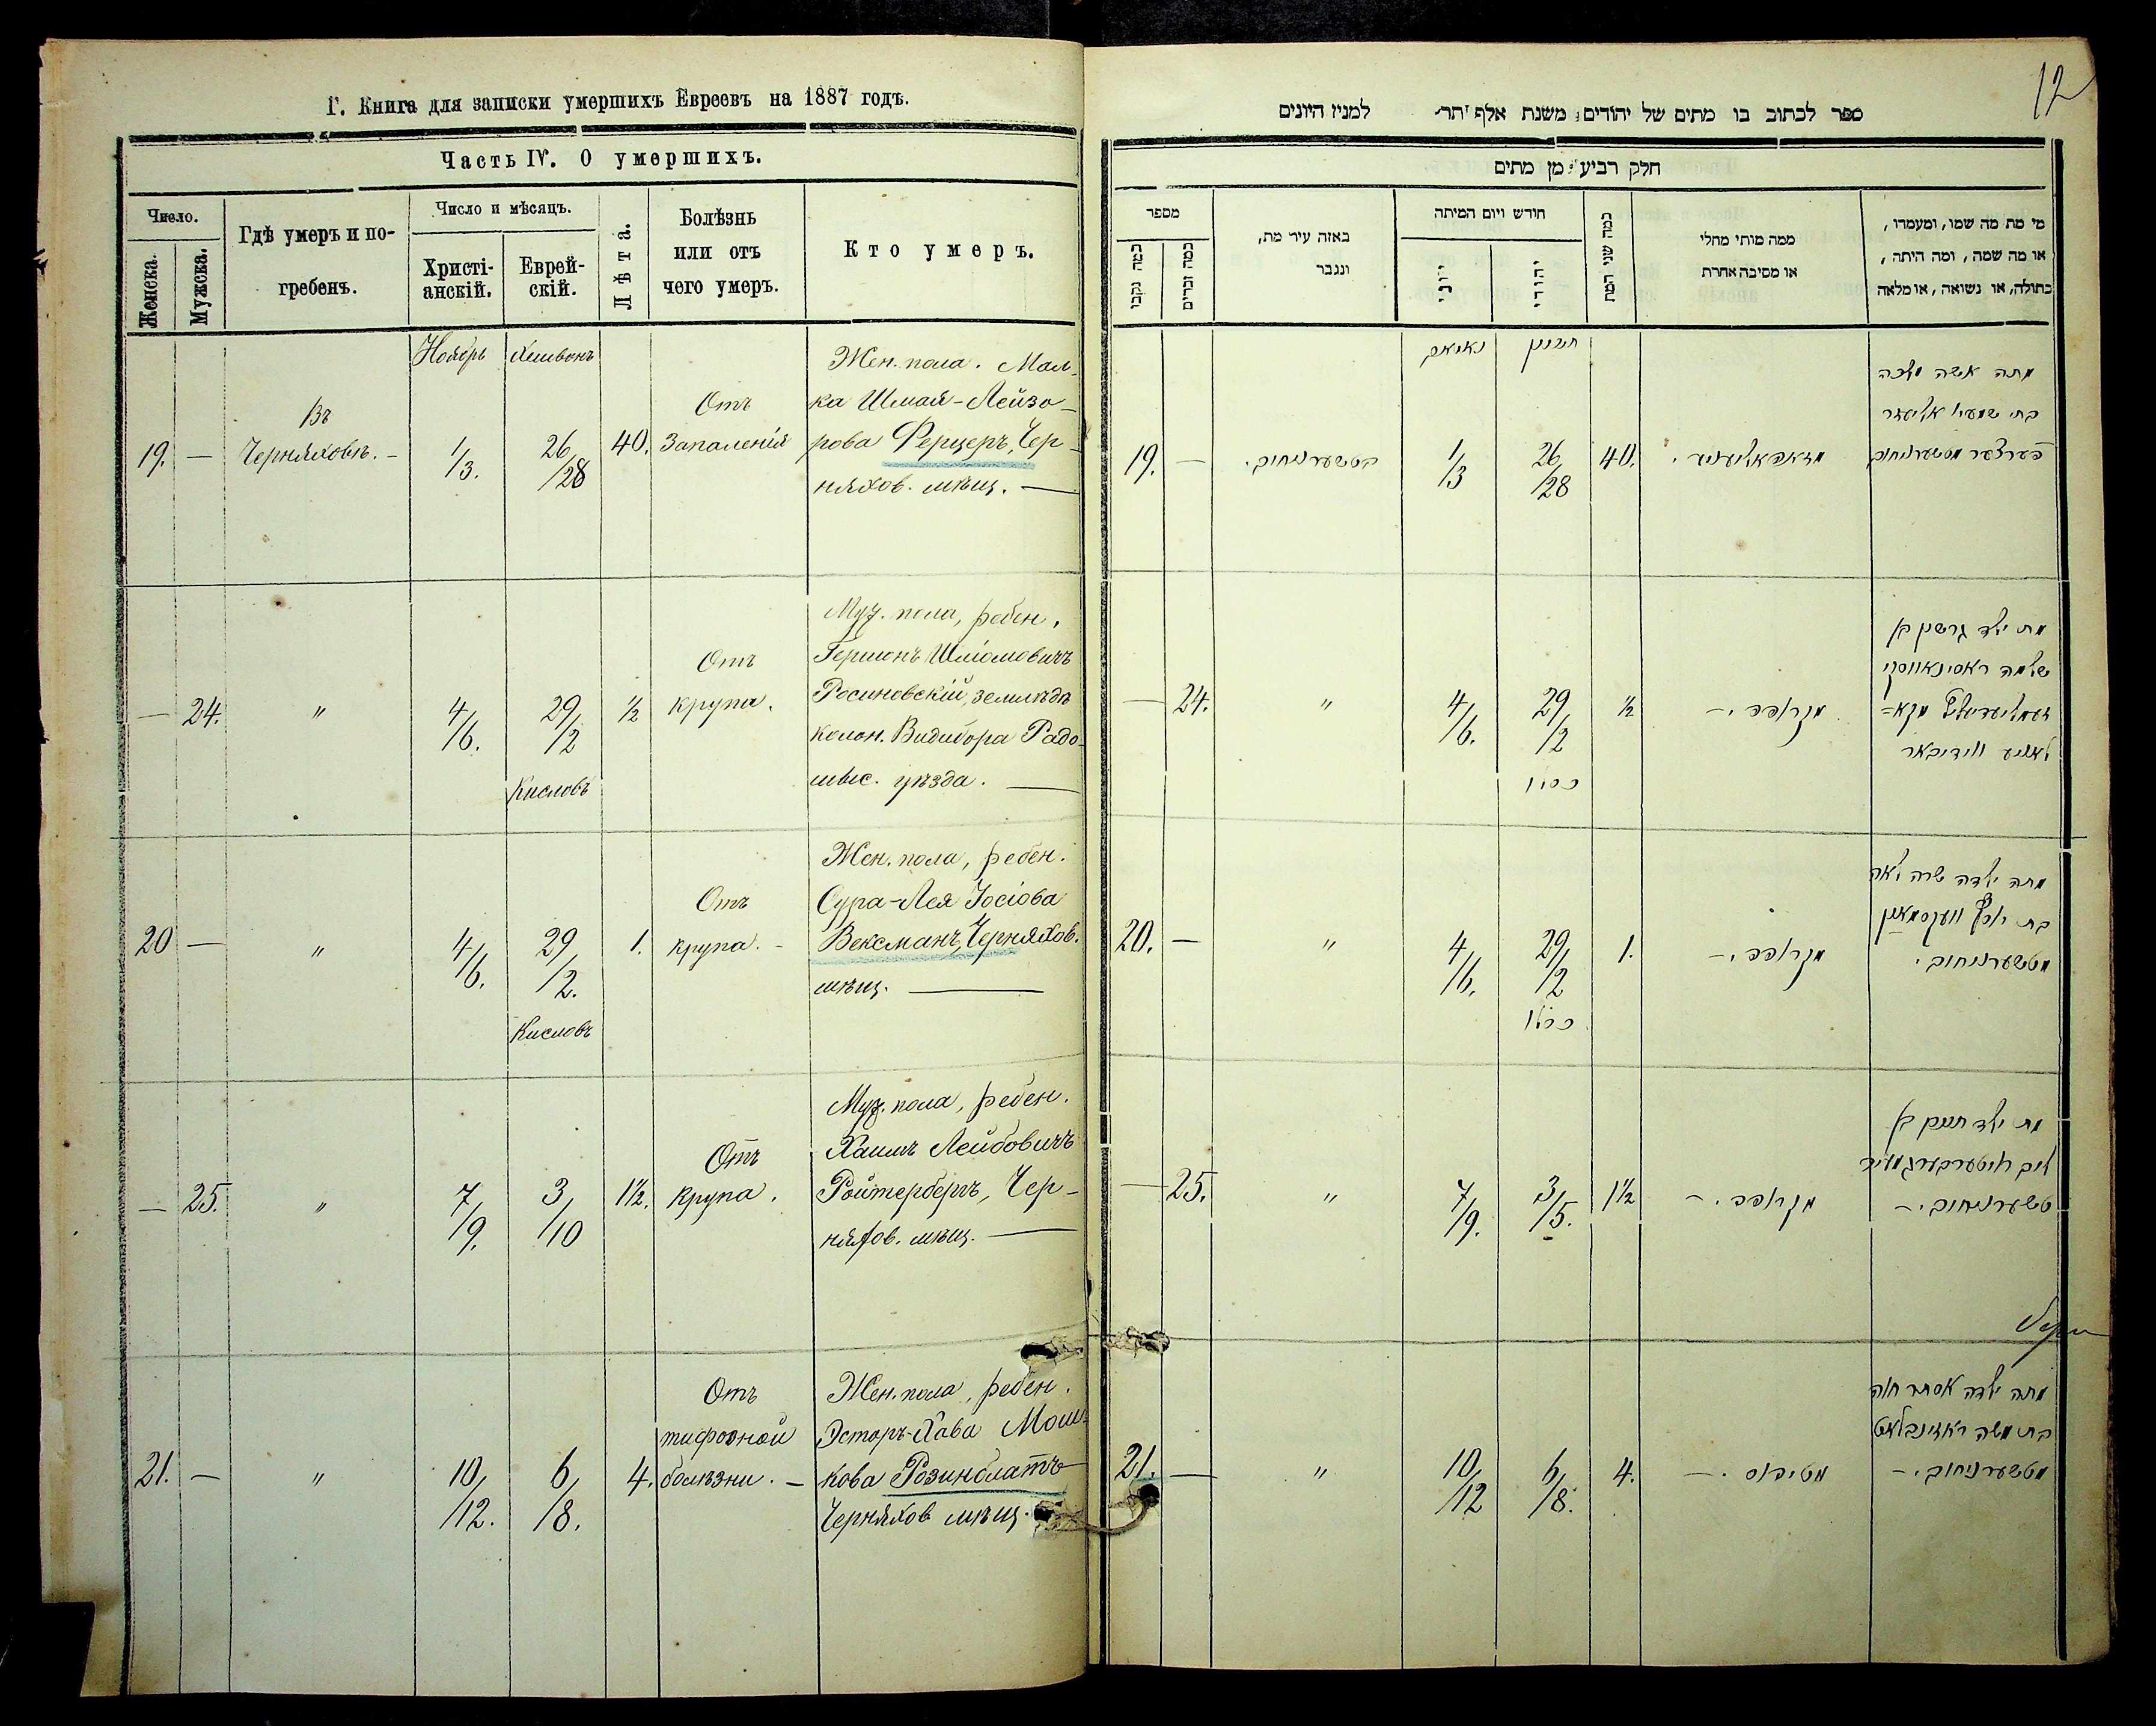 Г. Книга для записки умершихъ Евреевъ на 1887 годъ.
Часть IV. О умершихъ.
Число.
Женска.
Мужска.
Гдѣ умеръ и по-
гребенъ.
Число и мѣсяцъ.
Христі-
анскій.
Еврей-
скій.
Лѣта.
Болѣзнь
или отъ
чего умеръ.
Кто умеръ.
Ноябрь
Хешвонъ
19. —
Въ
Черняховѣ. —
1/3.
26/28
40.
Отъ
Запаленія
Жен. пола. Мал-
ка Шмая-Лейзо-
рова Ферцеръ, Чер-
няхов. мѣщ. —
— 24.
"
4/6.
29/2
Кисловъ
½
Отъ
крупа.
Муж. пола, ребен.
Гершонъ Шліомовичъ
Росиновскій, землѣд
колон. Видибора Радо-
мыс. уѣзда. —
20 —
"
4/6.
29/2.
Кисловъ
1.
Отъ
крупа. -
Жен. пола, ребен.
Сура-Лея Іосіова
Вексманъ, Черняхов.
мѣщ. —
— 25.
"
7/9.
3/10
1½.
Отъ
Крупа.
Муж. пола, ребен.
Хаимъ Лейбовичъ
Ройтербергъ, Чер-
няхов. мѣщ. —
21. —
"
10/12.
6/8.
4.
Отъ
тифозной
болѣзни. —
Жен. пола, ребен.
Эстеръ-Хава Мош-
кова Розинблатъ
Черняхов мѣщ.
12
ספר לכתוב בו מתים של יהודים משנת אלף תתר למנין היונים
חלק רביעי מן מתים
מספר
כמה נקבו
כמה זכרים
באזה עיר מת,
ונגבר
חודש ויום המיתה
יווני
יהודי
כמה שני המת
ממה מותי מחלי
או מסיבה אחרת
מי מת מה שמו, ומעמדו,
או מה שמה, ומה היתה,
בתולה, או נשואה, או מלאה
חשון
19. —
1/3
26/28
40.
מתה אשה מלכה
בת שמעי' אליעזר
— 24.
"
4/6.
29/2
כסלו
½
מקרופפ. —
מת ילד גרשון בן
שלמה ראסינאווסקי
20. —
"
4/6.
29/2
כסלו
1.
מקרופפ. —
מתה ילדה שרה לאה
בת יוסף וועקסמאן
מטשערניחוב.
— 25.
"
7/9.
3/5.
1½
מקרופפ. —
מת ילד חיים בן
טשערניחוב. —
21. —
"
10/12
6/8.
4.
מטיפוס. —
מתה ילדה אסתר חוה
בת משה ראזינבלאט
מטשערניחוב. —